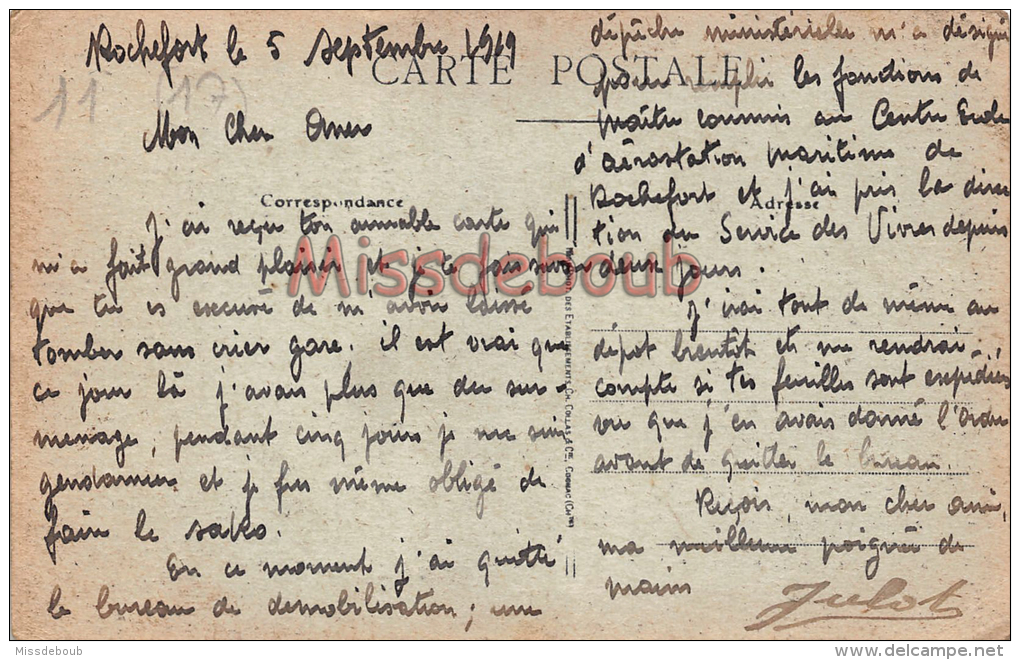 Rochefort le 5 septembre 1919
CARTE POSTALE
11 (17)
Mon cher
Correspondance
J'ai reçu ton aimable carte qui
m'a fait grand plaisir et je te
que tu es excusé de m'avoir laissé
tomber sans crier gare. il est vrai que
ce jour là j'avais plus que du sur-
menage, pendant cinq jours je me suis
gendarmé et je fus même obligé de
faire le sako.
En ce moment j'ai quitté
le bureau de démobilisation; une
dépêche ministérielle m'a désigné
pour remplir les fonctions de
maître commis au Centre Ecole
d'aérostation maritime de
Rochefort et j'ai pris la direc
Adresse
tion du Service des Vivres depuis
deux jours.
J'irai tout de même au
dépôt bientôt et me rendrai
compte si tes feuilles sont expédiées
vu que j'en avais donné l'ordre
avant de quitter le bureau.
Reçois, mon cher ami,
ma meilleure poignée de
mains
Julot
DES ETABLISSEMENTS CH. COLLAS & Cie, COGNAC (Chte)
Missdeboub
Missdeboub
delcampe.net